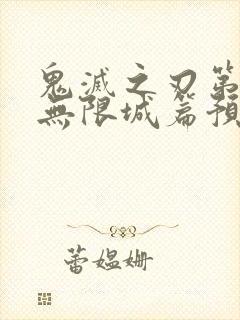 鬼滅之刃第
無限城篇預
蕾媪姗